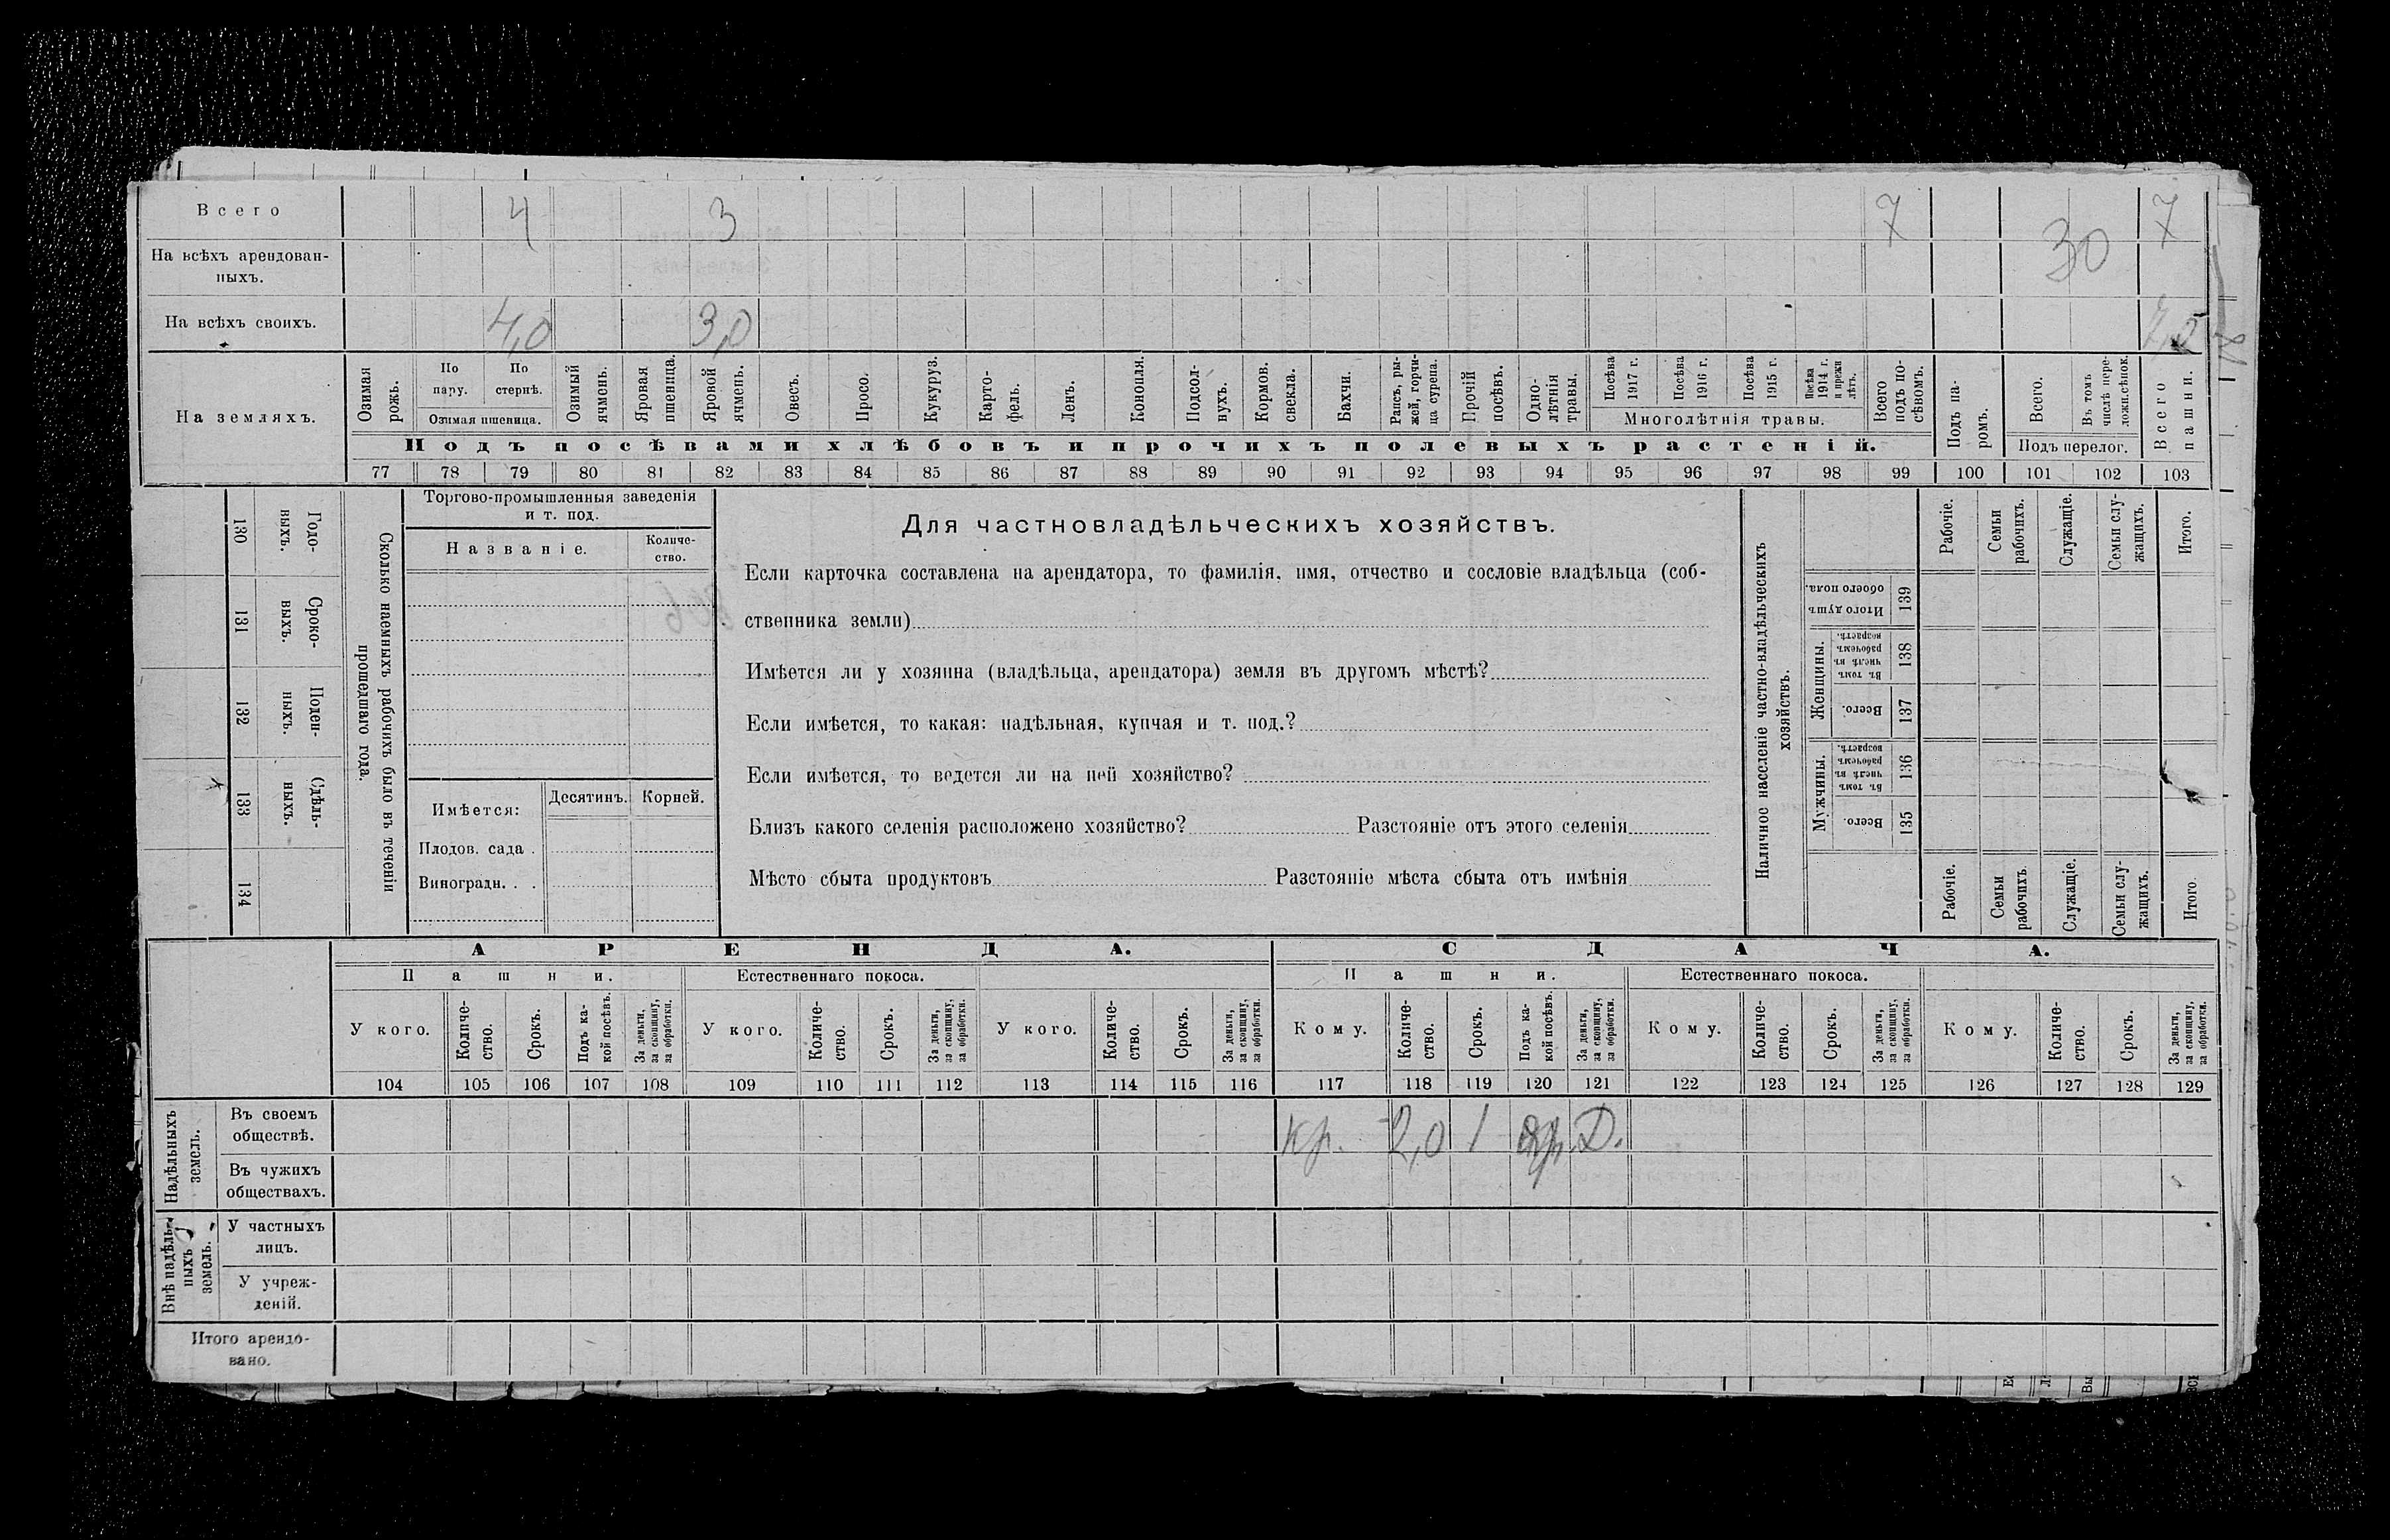 Всего 4 3 7 30 7
На всѣхъ арендован-
ныхъ.
На всѣхъ своихъ. 4,0 3,0
На земляхъ.
Озимая рожь.
По пару.
По стернѣ.
Озимая пшеница.
Озимый ячмень.
Яровая пшеница.
Яровой ячмень.
Овесъ.
Просо.
Кукуруз.
Карто-
фель.
Ленъ.
Конопля.
Подсол-
нухъ.
Кормов. свекла.
Бахчи.
Рапсъ, ры-
жей, горчи-
ца сурепа.
Прочій посѣвъ.
Одно-
лѣтнія травы.
Посѣва 1917 г.
Посѣва 1916 г.
Посѣва 1915 г.
Посѣва 1914 г. и прежн лѣтъ.
Многолѣтнія травы.
Всего подъ по-
сѣвомъ.
Подъ па-
ромъ.
Всего.
Въ томъ числѣ пере-
ложн. сѣнок.
Подъ перелог.
Всего пашни.
Подъ посѣвами хлѣбовъ и прочихъ полевыхъ растеній.
77 78 79 80 81 82 83 84 85 86 87 88 89 90 91 92 93 94 95 96 97 98 99 100 101 102 103
130 Годо-
выхъ.
131 Сроко-
выхъ.
132 Поден-
ныхъ.
133 Сдѣль-
ныхъ.
134
Сколько наемныхъ рабочихъ было въ теченіи
прошедшаго года.
Торгово-промышленныя заведенія
и т. под.
Названіе.
Количе-
ство.
Имѣется: Десятинъ. Корней.
Плодов. сада .
Виноградн. . .
Для частновладѣльческихъ хозяйствъ.
Если карточка составлена на арендатора, то фамилія, имя, отчество и сословіе владѣльца (соб-
ственника земли)
Имѣется ли у хозяина (владѣльца, арендатора) земля въ другомъ мѣстѣ?
Если имѣется, то какая: надѣльная, купчая и т. под.?
Если имѣется, то ведется ли на ней хозяйство?
Близъ какого селенія расположено хозяйство? Разстояніе отъ этого селенія
Мѣсто сбыта продуктовъ Разстояніе мѣста сбыта отъ имѣнія
Наличное населеніе частно-владѣльческихъ
хозяйствъ.
Рабочіе.
Семьи рабочихъ.
Служащіе.
Семьи слу-
жащихъ.
Итого.
Итого душъ обоего пола. 139
Женщины.
Въ томъ числѣ въ рабочемъ возрастѣ. 138
Всего. 137
Мужчины.
Въ томъ числѣ въ рабочемъ возрастѣ. 136
Всего. 135
Рабочіе.
Семьи рабочихъ.
Служащіе.
Семьи слу-
жащихъ.
Итого.
АРЕНДА. СДАЧА.
Пашни. Естественнаго покоса. Пашни. Естественнаго покоса.
У кого.
Количе-
ство.
Срокъ.
Подъ ка-
кой посѣвъ.
За деньги, за скопщину, за обработки.
У кого.
Количе-
ство.
Срокъ.
За деньги, за скопщину, за обработки.
У кого.
Количе-
ство.
Срокъ.
За деньги, за скопщину, за обработки.
Кому.
Количе-
ство.
Срокъ.
Подъ ка-
кой посѣвъ.
За деньги, за скопщину, за обработки.
Кому.
Количе-
ство.
Срокъ.
За деньги, за скопщину, за обработки.
Кому.
Количе-
ство.
Срокъ.
За деньги, за скопщину, за обработки.
104 105 106 107 108 109 110 111 112 113 114 115 116 117 118 119 120 121 122 123 124 125 126 127 128 129
Надѣльныхъ земель.
Въ своемъ
обществѣ. кр. 2,0 1 яр. Д.
Въ чужихъ
обществахъ.
Внѣ надѣль-
ныхъ земель.
У частныхъ
лицъ.
У учреж-
деній.
Итого арендо-
вано.